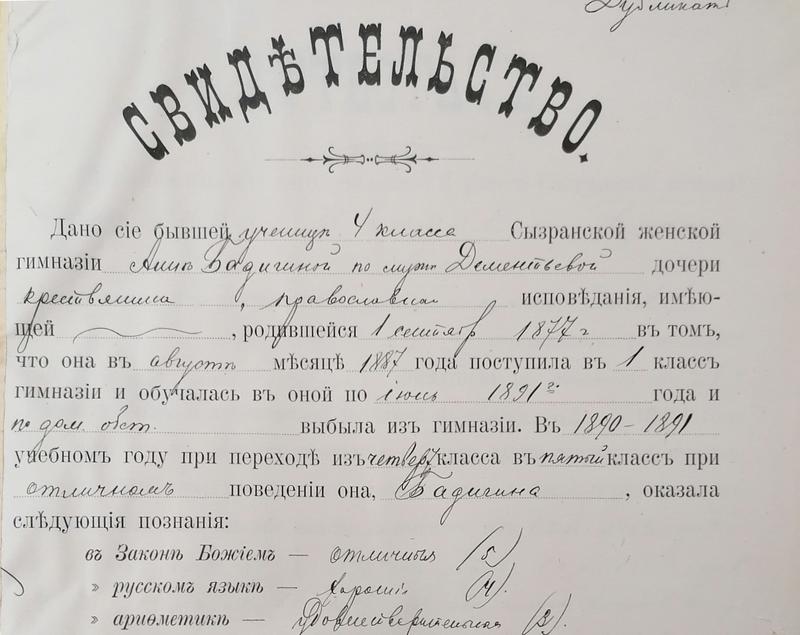 Дубликатъ
СВИДѢТЕЛЬСТВО.
Дано сіе бывшей ученицѣ 4 класса Сызранской женской
гимназіи Аннѣ Бадигиной по мужу Дементьевой дочери
крестьянина, православнаго исповѣданія, имѣю-
щей, родившейся 1 сентября 1877 г въ томъ,
что она въ августѣ мѣсяцѣ 1887 года поступила въ 1 классъ
гимназіи и обучалась въ оной по іюнь 1891 г. года и
по дом. обст. выбыла изъ гимназіи. Въ 1890–1891
учебномъ году при переходѣ изъ четверт. класса въ пятый классъ при
отличномъ поведеніи она, Бадигина, оказала
слѣдующія познанія:
въ Законѣ Божіемъ — отличныя (5)
» русскомъ языкѣ — хорошія (4).
» ариѳметикѣ — удовлетворительныя (3).